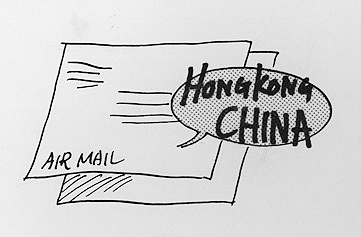 HONGKONG
CHINA
AIR MAIL